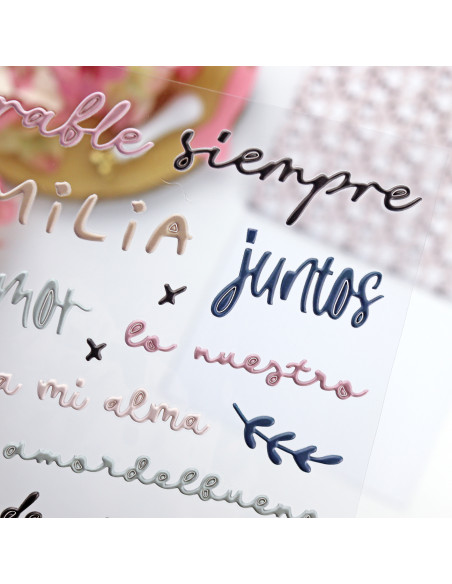 rable siempre
MILIA
juntos
mor
lo nuestro
a mi alma
amordelbueno
de